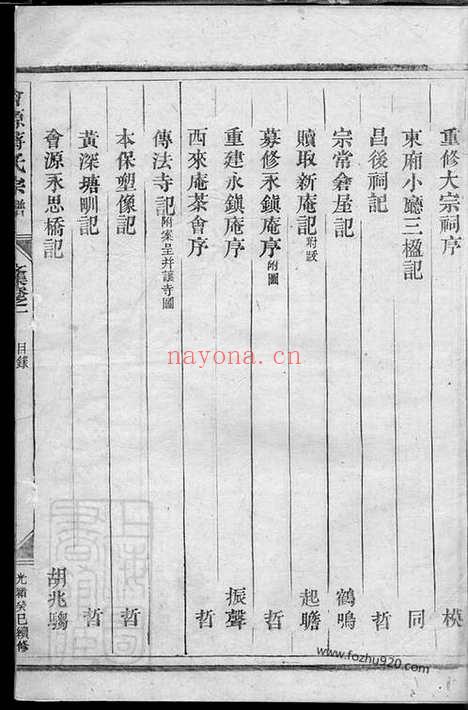 重修大宗祠序 模
東廂小廳三楹記 同
昌後祠記 哲
宗常倉屋記 鶴鳴
贖取新庵記附跋 起瞻
募修永鎮庵序附圖 哲
重建永鎮庵序 振聲
西來庵茶會序 哲
傳法寺記附案呈并護寺圖
本保塑像記 哲
黃深塘畈記 哲
會源永思橋記 胡兆騶
會源蔣氏宗譜
文集卷一
目錄
光緒癸巳續修
nayona.cn
www.fozhu920.com